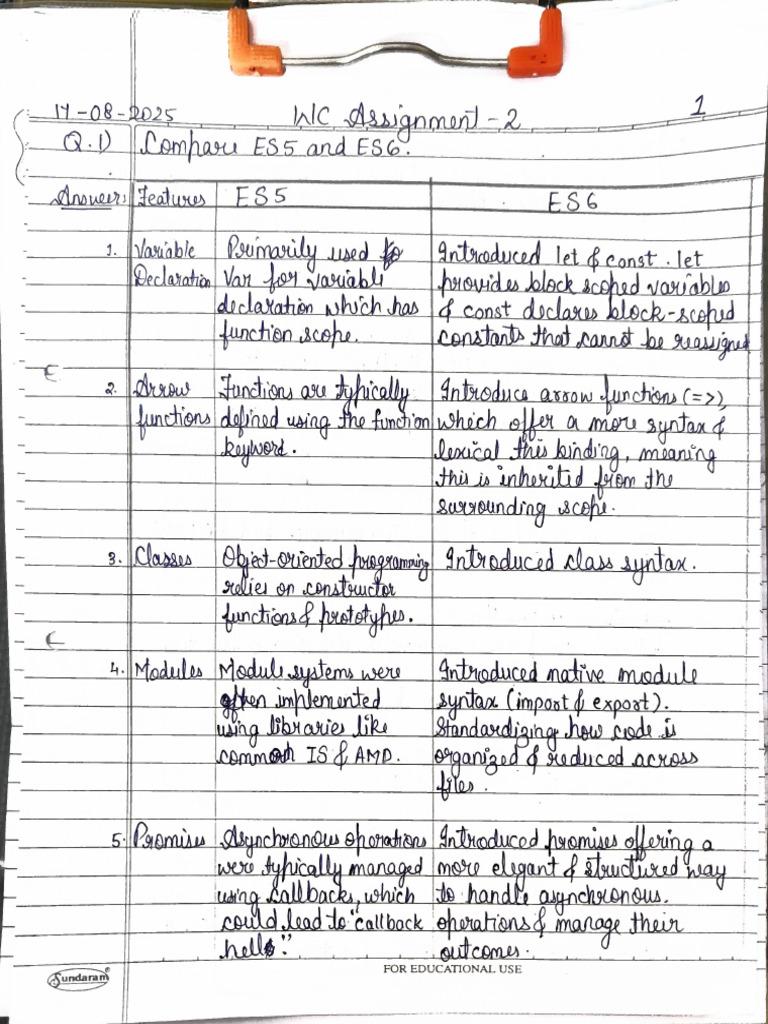 17-08-2025 WC Assignment-2 1
Q.1) Compare ES5 and ES6.
Answer: Features ES5 ES6
1. Variable Declaration
Primarily used to
Var for variable
declaration which has
function scope.
Introduced let & const. let
provides block scoped variables
& const declares block-scoped
constants that cannot be reassigned
2. Arrow functions
Functions are typically
defined using the function
keyword.
Introduce arrow functions (=>),
which offer a more syntax &
lexical this binding, meaning
this is inheritid from the
surrounding scope.
3. Classes
Object-oriented programming
relies on constructor
functions & prototypes.
Introduced class syntax.
4. Modules
Module systems were
often implemented
using libraries like
common IS & AMD.
Introduced native module
syntax (import & export).
Standardizing how code is
organized & reduced across
files.
5. Promises
Asynchronous operations
were typically managed
using callbacks, which
could lead to "callback
hell".
Introduced promises offering a
more elegant & structured way
to handle asynchronous.
operations & manage their
outcomes.
Sundaram®
FOR EDUCATIONAL USE